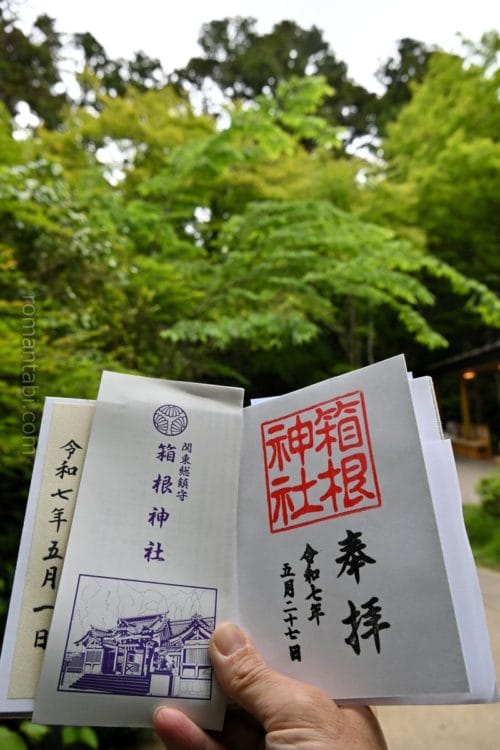 箱根
神社
奉拝
令和七年
五月二十七日
関東総鎮守
箱根神社
令和七年五月一日
romantabi.com